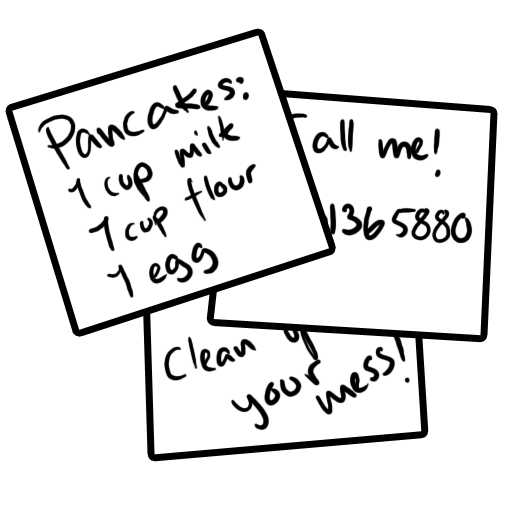 Pancakes:
1 cup milk
1 cup flour
1 egg
Call me!
1365880
Clean up
your mess!